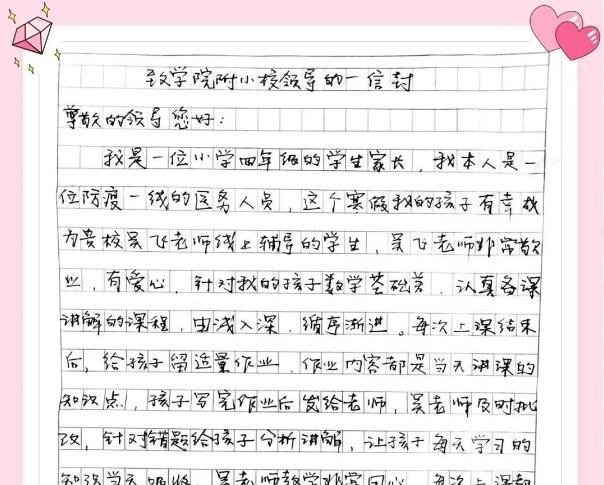 致学院附小校领导的一信封
尊敬的领导您好：
我是一位小学四年级的学生家长，我本人是一
位防疫一线的医务人员，这个寒假我的孩子有幸成
为贵校吴飞老师线上辅导的学生，吴飞老师非常敬
业，有爱心，针对我的孩子数学基础差，认真备课
讲解的课程，由浅入深，循序渐进。每次上课结束
后，给孩子留适量作业，作业内容都是当天讲课的
知识点，孩子写完作业后发给老师，吴老师及时批
改，针对错题给孩子分析讲解，让孩子每天学习的
知识当天吸收，吴老师教学非常用心，每次上课都